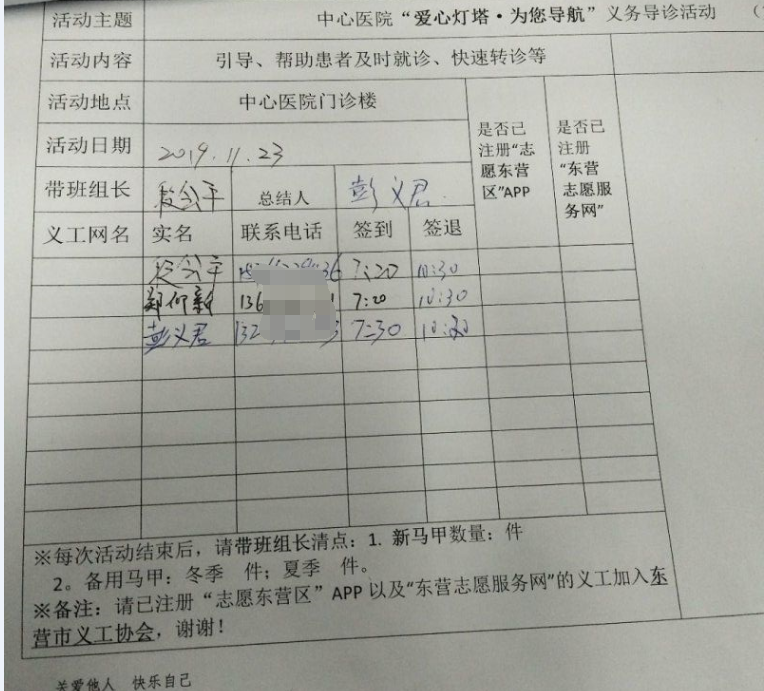 活动主题 中心医院“爱心灯塔·为您导航”义务导诊活动 （
活动内容 引导、帮助患者及时就诊、快速转诊等
活动地点 中心医院门诊楼
是否已注册“志愿东营区”APP
是否已注册“东营志愿服务网”
活动日期 2019.11.23
带班组长 公平 总结人 彭义君
义工网名 实名 联系电话 签到 签退
公平 36 7:20 10:30
郑 新 136 1 7:20 10:30
彭义君 132 3 7:30
※每次活动结束后，请带班组长清点：1. 新马甲数量： 件
2。备用马甲：冬季 件；夏季 件。
※备注：请已注册“志愿东营区”APP 以及“东营志愿服务网”的义工加入东
营市义工协会，谢谢！
关爱他人 快乐自己